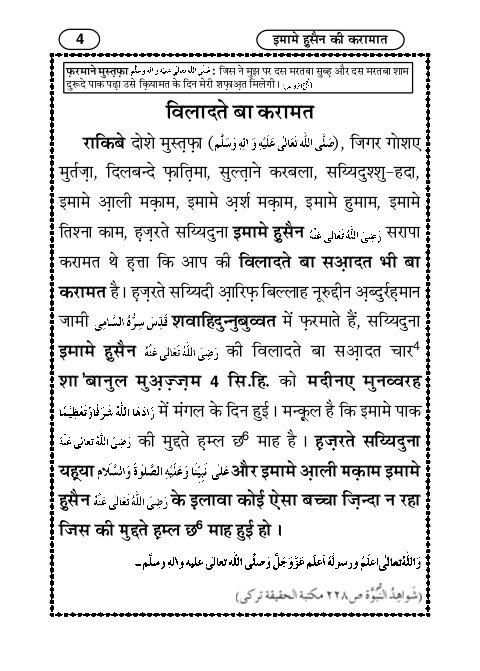 4
इमामे हुसैन की करामात
फ़रमाने मुस्तफ़ा صَلَّى اللهُ تَعَالٰى عَلَيْهِ وَاٰلِهٖ وَسَلَّم : जिस ने मुझ पर दस मरतबा सुब्ह और दस मरतबा शाम
दुरूदे पाक पढ़ा उसे क़ियामत के दिन मेरी शफ़ाअ़त मिलेगी।
विलादते बा करामत
राकिबे दोशे मुस्तफ़ा (صَلَّى اللهُ تَعَالٰى عَلَيْهِ وَاٰلِهٖ وَسَلَّم), जिगर गोशए
मुर्तज़ा, दिलबन्दे फ़ातिमा, सुल्ताने करबला, सय्यिदुश्शु-हदा,
इमामे आ़ली मक़ाम, इमामे अ़र्श मक़ाम, इमामे हुमाम, इमामे
तिश्ना काम, ह़ज़रते सय्यिदुना इमामे हुसैन رَضِىَ اللهُ تَعَالٰى عَنْهُ सरापा
करामत थे हत्ता कि आप की विलादते बा सआ़दत भी बा
करामत है। ह़ज़रते सय्यिदी आ़रिफ़ बिल्लाह नूरुद्दीन अ़ब्दुर्रह़मान
जामी قُدِّسَ سِرُّهُ السَّامِى शवाहिदुन्नुबुव्वत में फ़रमाते हैं, सय्यिदुना
इमामे हुसैन رَضِىَ اللهُ تَعَالٰى عَنْهُ की विलादते बा सआ़दत चार4
शा 'बानुल मुअ़ज़्ज़म 4 सि.हि. को मदीनए मुनव्वरह
زَادَهَا اللهُ شَرَفًا وَّتَعْظِيْمًا में मंगल के दिन हुई। मन्क़ूल है कि इमामे पाक
رَضِىَ اللهُ تَعَالٰى عَنْهُ की मुद्दते ह़म्ल छ6 माह है। ह़ज़रते सय्यिदुना
यह़्या عَلٰى نَبِيِّنَا وَعَلَيْهِ الصَّلٰوةُ وَالسَّلَام और इमामे आ़ली मक़ाम इमामे
हुसैन رَضِىَ اللهُ تَعَالٰى عَنْهُ के इलावा कोई ऐसा बच्चा ज़िन्दा न रहा
जिस की मुद्दते ह़म्ल छ6 माह हुई हो।
وَاللهُ تَعَالٰى اَعْلَمُ ورسولُهٗ اَعلَم عَزَّوَجَلَّ وَصلَّى الله تعالى عليه واٰله وسلَّم۔
(شَواهِدُ النُّبُوَّة ص٢٢٨ مكتبة الحقيقة تركى)